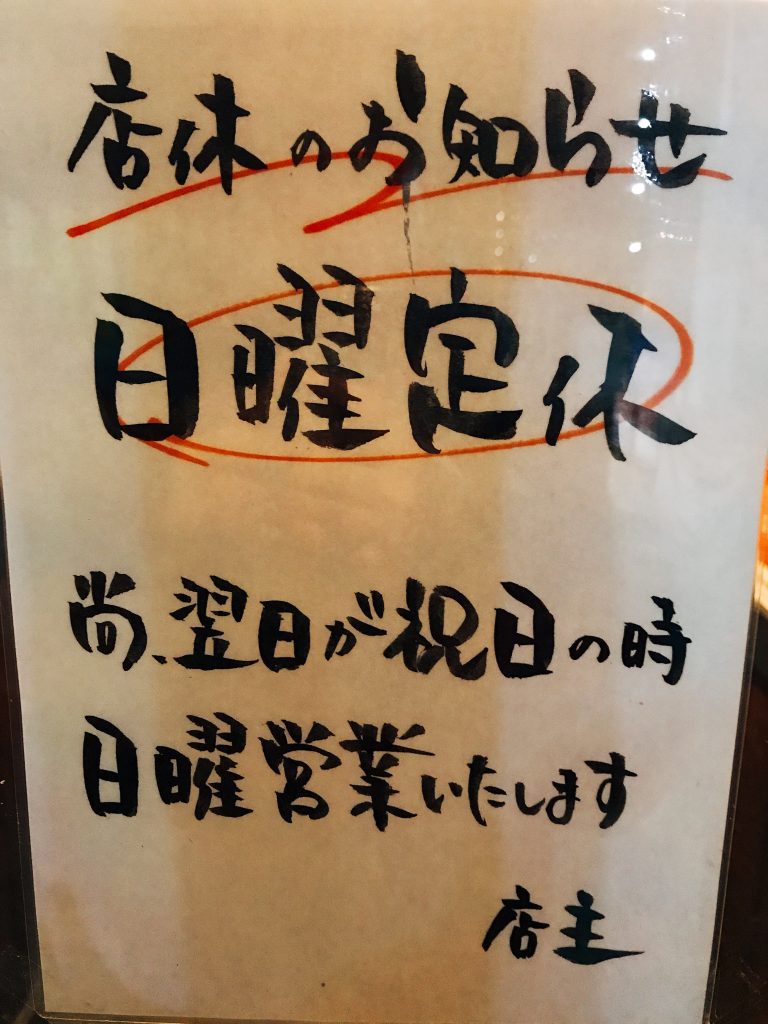 店休のお知らせ
日曜定休
尚、翌日が祝日の時
日曜営業いたします
店主